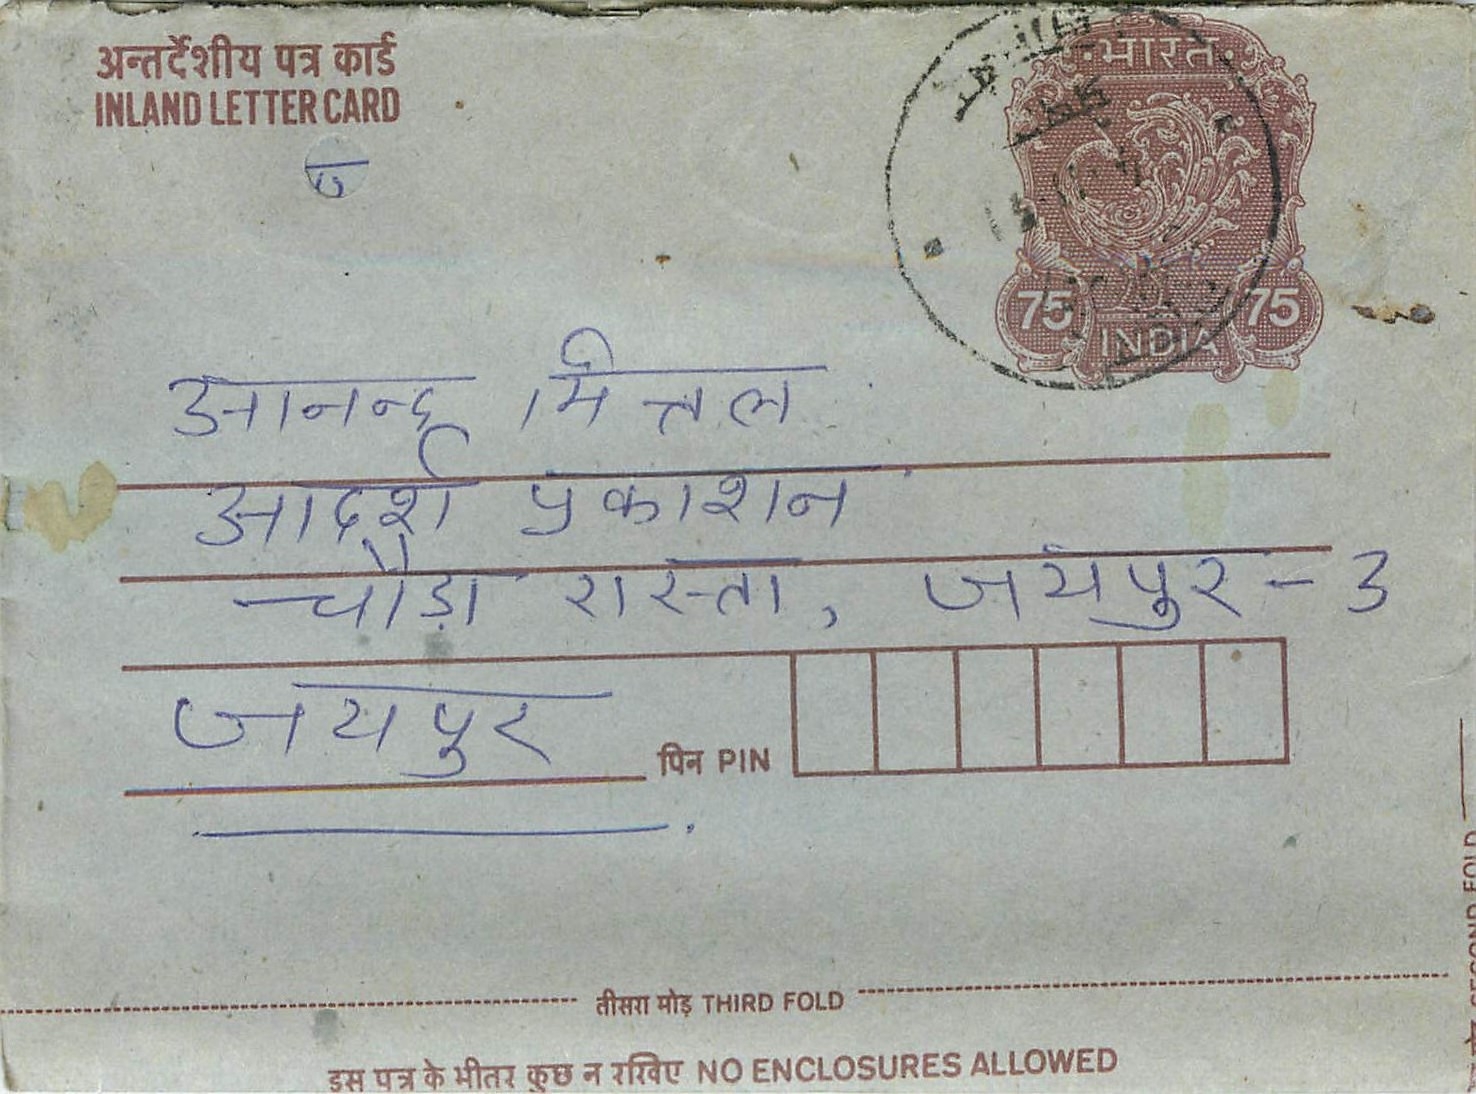 अन्तर्देशीय पत्र कार्ड
INLAND LETTER CARD
भारत
75 75
INDIA
आनन्द मित्तल
आदर्श प्रकाशन
चौड़ा रास्ता, जयपुर - 3
जयपुर
पिन PIN
तीसरा मोड़ THIRD FOLD
इस पत्र के भीतर कुछ न रखिए NO ENCLOSURES ALLOWED
SECOND FOLD